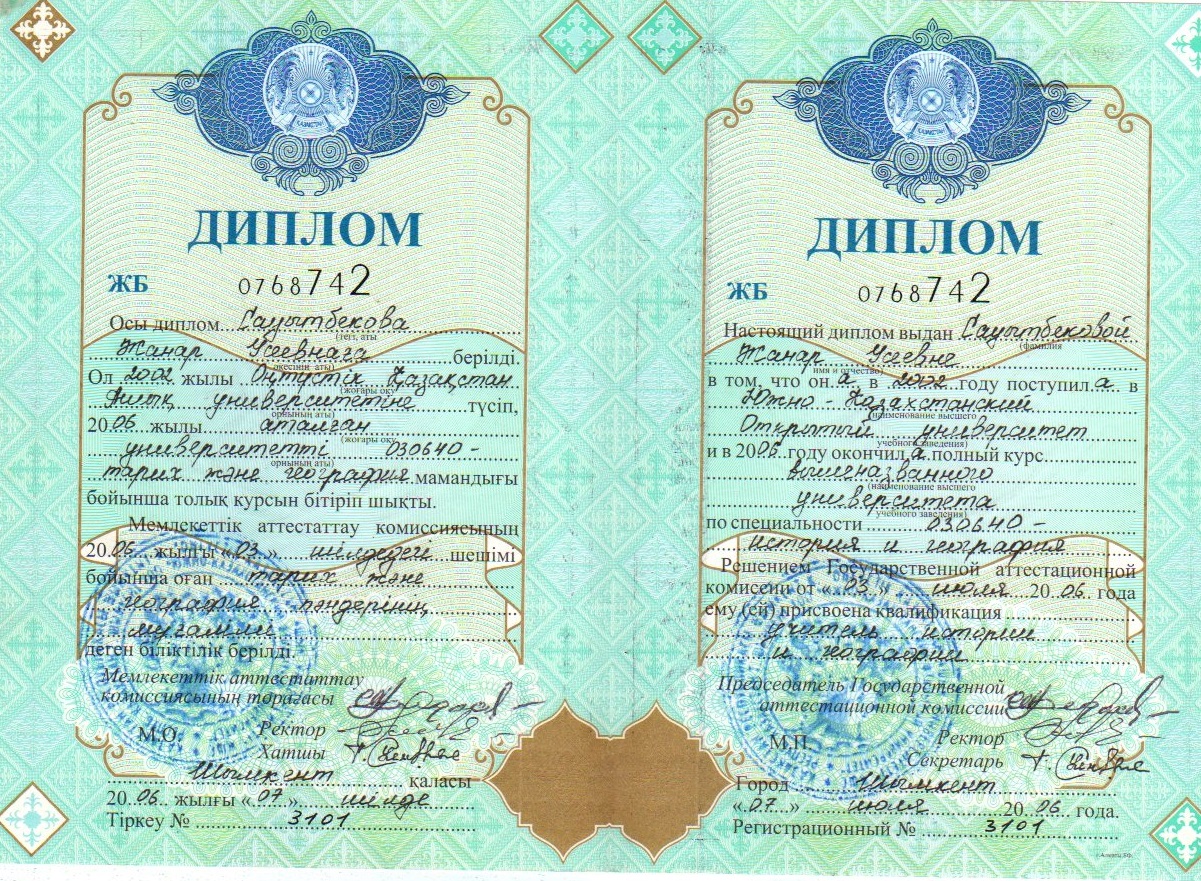 ҚАЗАҚСТАН
ДИПЛОМ
ЖБ 0768742
Осы диплом Сауытбекова
(тегі, аты
Жанар Усевнаға берілді.
әкесінің аты)
Ол 2002 жылы Оңтүстік Қазақстан
(жоғары оқу
Ашық университетіне түсіп,
орнының аты)
2006 жылы аталған
(жоғары оқу
университетті 030640 -
орнының аты)
тарих және география мамандығы
бойынша толық курсын бітіріп шықты.
Мемлекеттік аттестаттау комиссиясының
2006 жылғы «03» шілдедегі шешімі
бойынша оған тарих және
география пәндерінің
мұғалімі
деген біліктілік берілді.
Мемлекеттік аттестаттау
комиссиясының төрағасы
Ректор
М.О.
Хатшы
Шымкент қаласы
2006 жылғы «07» шілде
Тіркеу № 3101
ҚАЗАҚСТАН
ДИПЛОМ
ЖБ 0768742
Настоящий диплом выдан Сауытбековой
(фамилия
Жанар Усевне
имя и отчество)
в том, что он а в 2002 году поступил а в
Южно - Казахстанский
(наименование высшего
Открытый университет
учебного заведения)
и в 2006 году окончил а полный курс
вышеназванного
(наименование высшего
университета
учебного заведения)
по специальности 030640 -
история и география
Решением Государственной аттестационной
комиссии от «03» июля 2006 года
ему (ей) присвоена квалификация
учитель истории
и географии
Председатель Государственной
аттестационной комиссии
Ректор
М.П.
Секретарь
Город Шымкент
«07» июля 2006 года.
Регистрационный № 3101